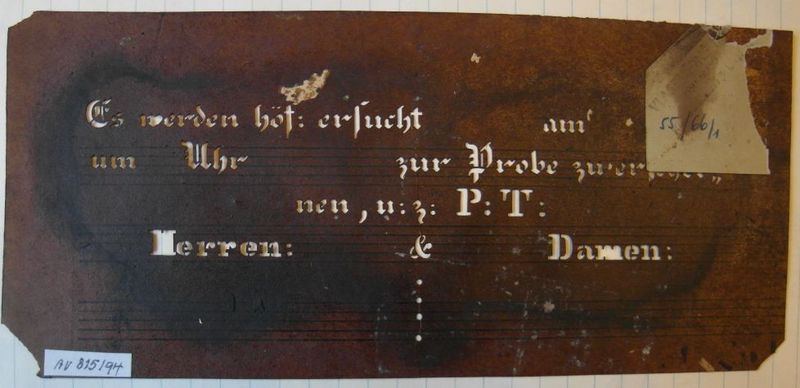 Es werden höf: ersucht am
55/66/1
um Uhr zur Probe zu erschei„
nen, u: z: P: T:
Herren: & Damen:
AV 815/94